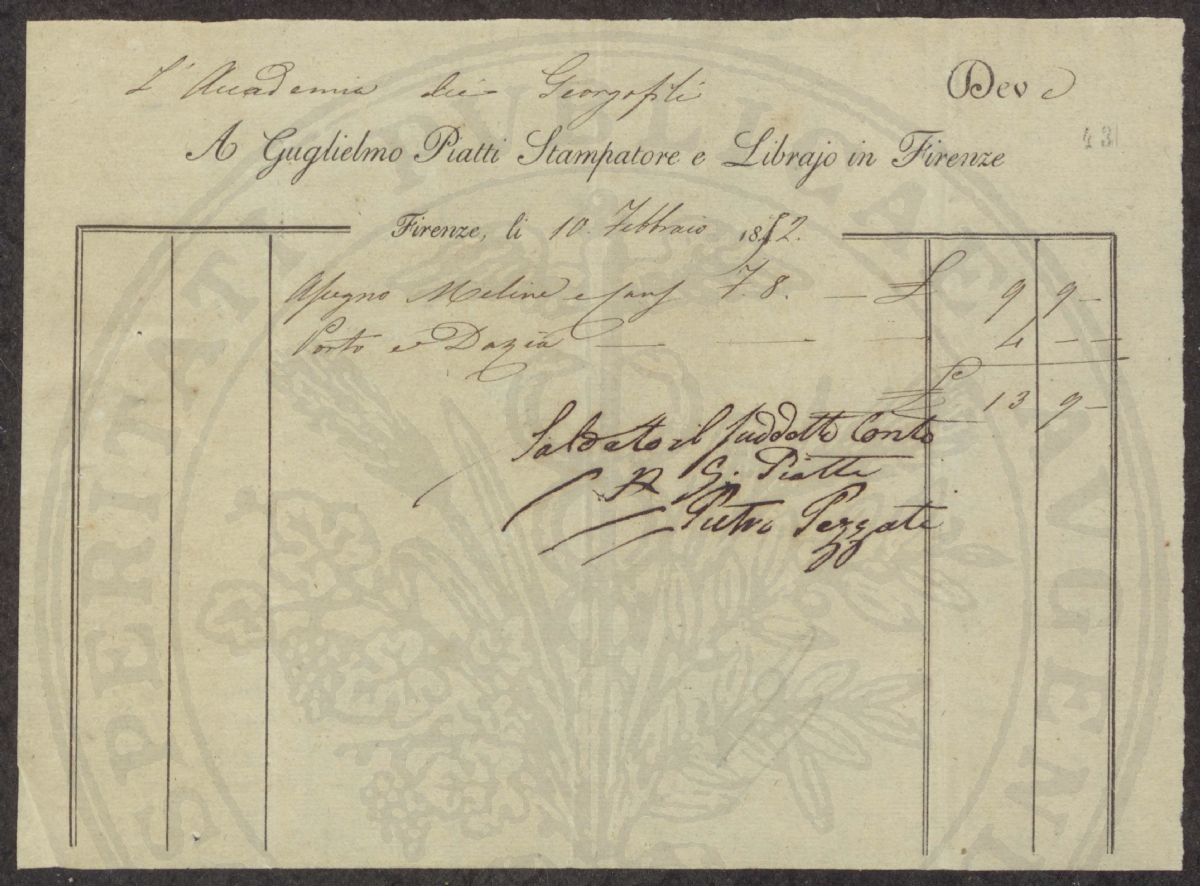 L'Accademia dei Georgofili Deve
A Guglielmo Piatti Stampatore e Librajo in Firenze
431
Firenze, li 10. Febbraio 1852.
Assegno Meline e Cans F. 8. — £ 9 9 —
Porto e Dazia — — — 4 — —
£ 13 9 —
Saldato il suddetto Conto
G. Piatti
Pietro Pezzati
PROSPERITATI PVBLICAE AVGENDAE